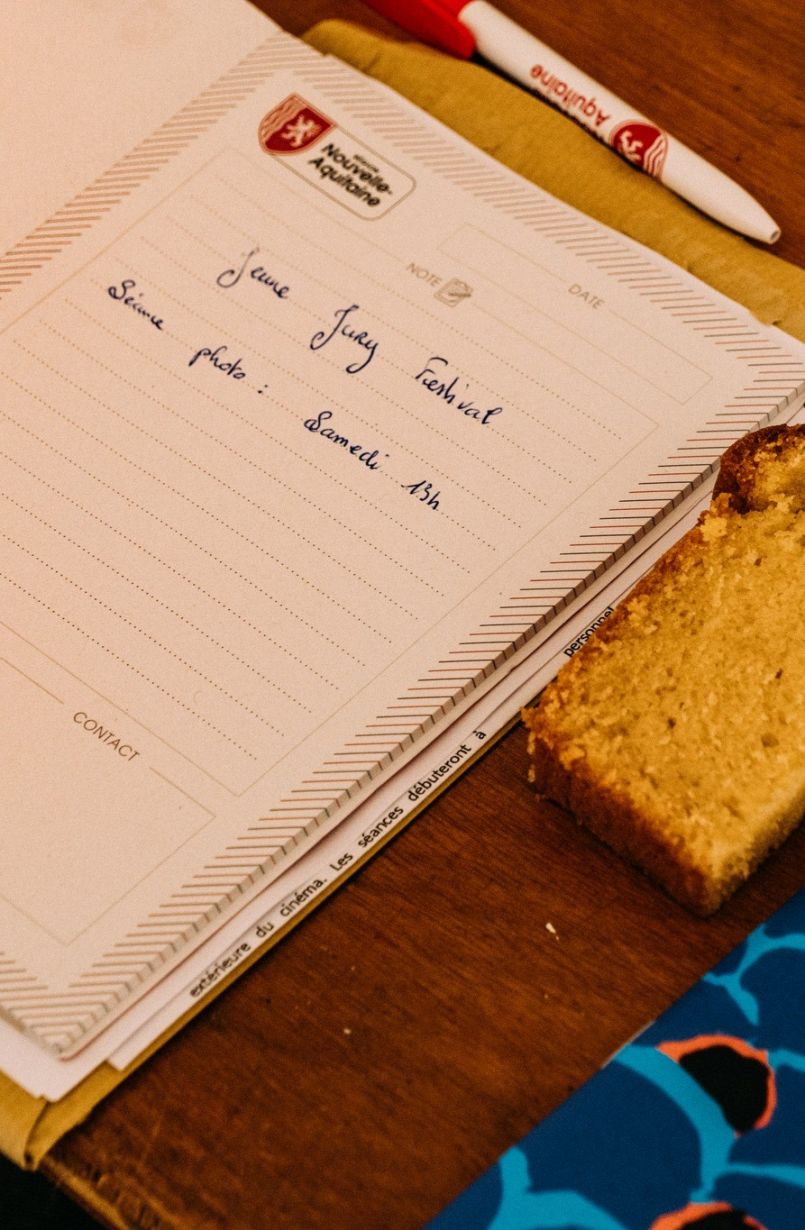 Aquitaine
RÉGION
Nouvelle-
Aquitaine
NOTE
DATE
Jeune Jury Festival
Séance photo : Samedi 13h
CONTACT
personnel
extérieure du cinéma. Les séances débuteront à